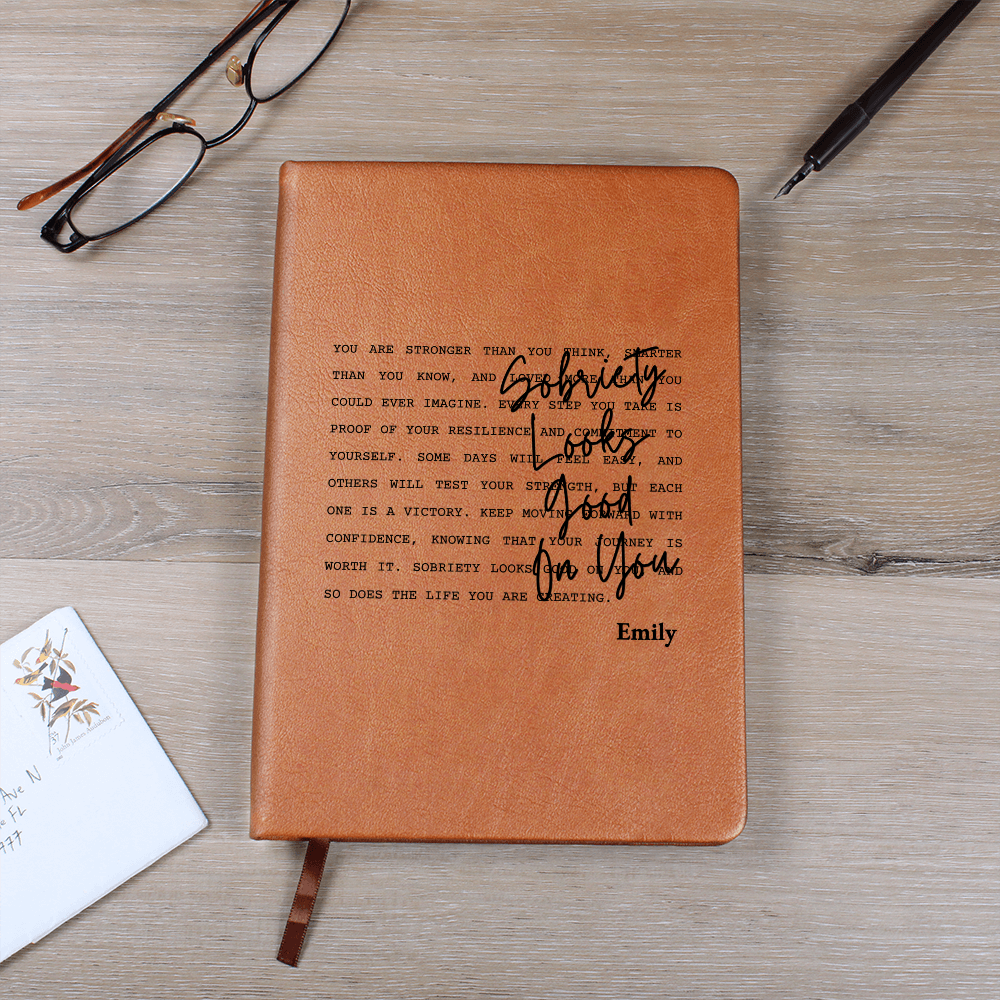 YOU ARE STRONGER THAN YOU THINK, SMARTER
THAN YOU KNOW, AND LOVED MORE THAN YOU
COULD EVER IMAGINE. EVERY STEP YOU TAKE IS
PROOF OF YOUR RESILIENCE AND COMMITMENT TO
YOURSELF. SOME DAYS WILL FEEL EASY, AND
OTHERS WILL TEST YOUR STRENGTH, BUT EACH
ONE IS A VICTORY. KEEP MOVING FORWARD WITH
CONFIDENCE, KNOWING THAT YOUR JOURNEY IS
WORTH IT. SOBRIETY LOOKS GOOD ON YOU, AND
SO DOES THE LIFE YOU ARE CREATING.
Sobriety
Looks
Good
On You
Emily
37
John James Audubon
Ave N
FL
977